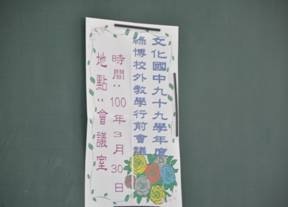 文化國中九十九學年度
綠博校外教學行前會議
時間：100年3月30日
地點：會議室